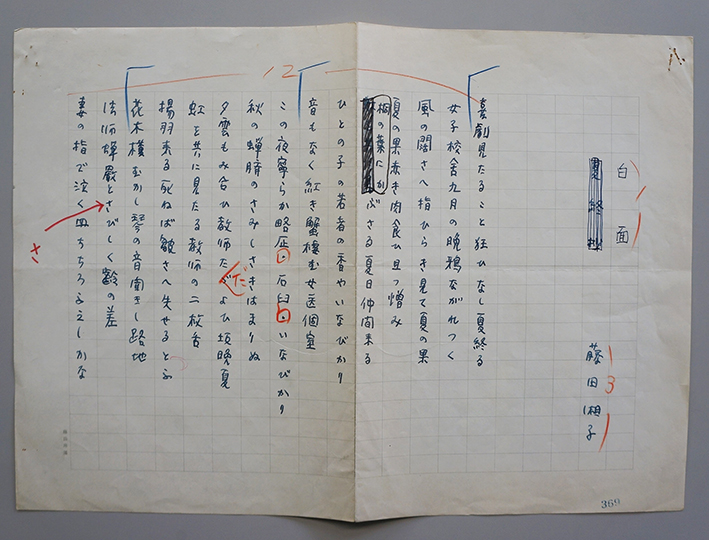 八
白面
夏終抄
藤田湘子
13
喜劇見たること狂ひなし夏終る
女子校舎九月の晩鴉ながれつぐ
風の闇さへ指ひらき見て夏の果
夏の果赤き肉食ひ且つ憎み
桐の葉にかぶさる夏日仲間来る
ひとの子の若者の香やいなびかり
音もなく紅き蟹棲む女医個室
この夜寧らか略歴・石臼・いなびかり
秋の蝉晴のさみしさきはまりぬ
夕雲もみ合ひ教師たゞよひ垣晩夏
だ
虹を共に見たる教師の二枚舌
揚羽来る死ねば皺さへ失せるとふ
花木槿むかし琴の音聞きし路地
法師蝉厳とさびしく齢の差
さ
妻の指で泣く皿ちちろふえしかな
12
369